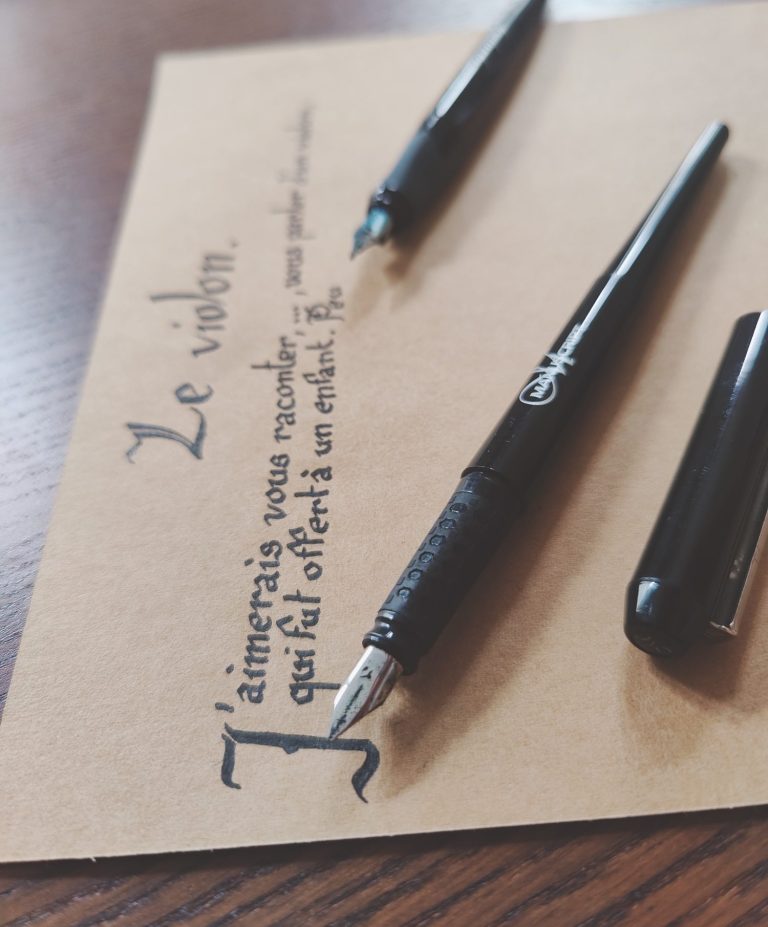 Le violon.
J'aimerais vous raconter, ..., vous parler d'un violon,
qui fut offert à un enfant.